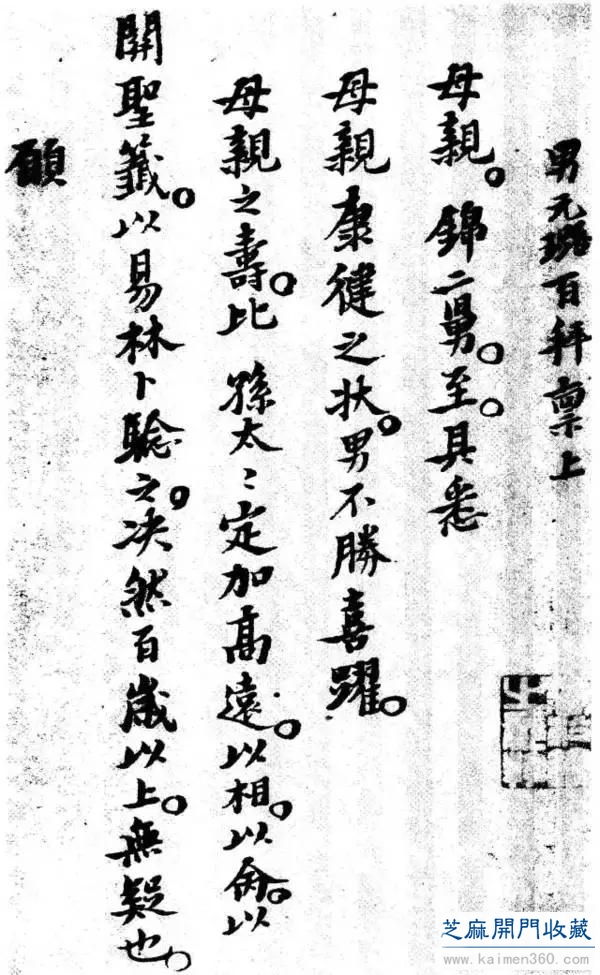 男元璐百拜稟上
母親。錦二舅。至。具悉
母親康健之狀。男不勝喜躍。
母親之壽。比孫太〻定加高遠。以相。以命。以
開聖籤。以易林卜驗之。决然百歲以上。無疑也。
願
芝麻開門收藏
www.kaimen360.com